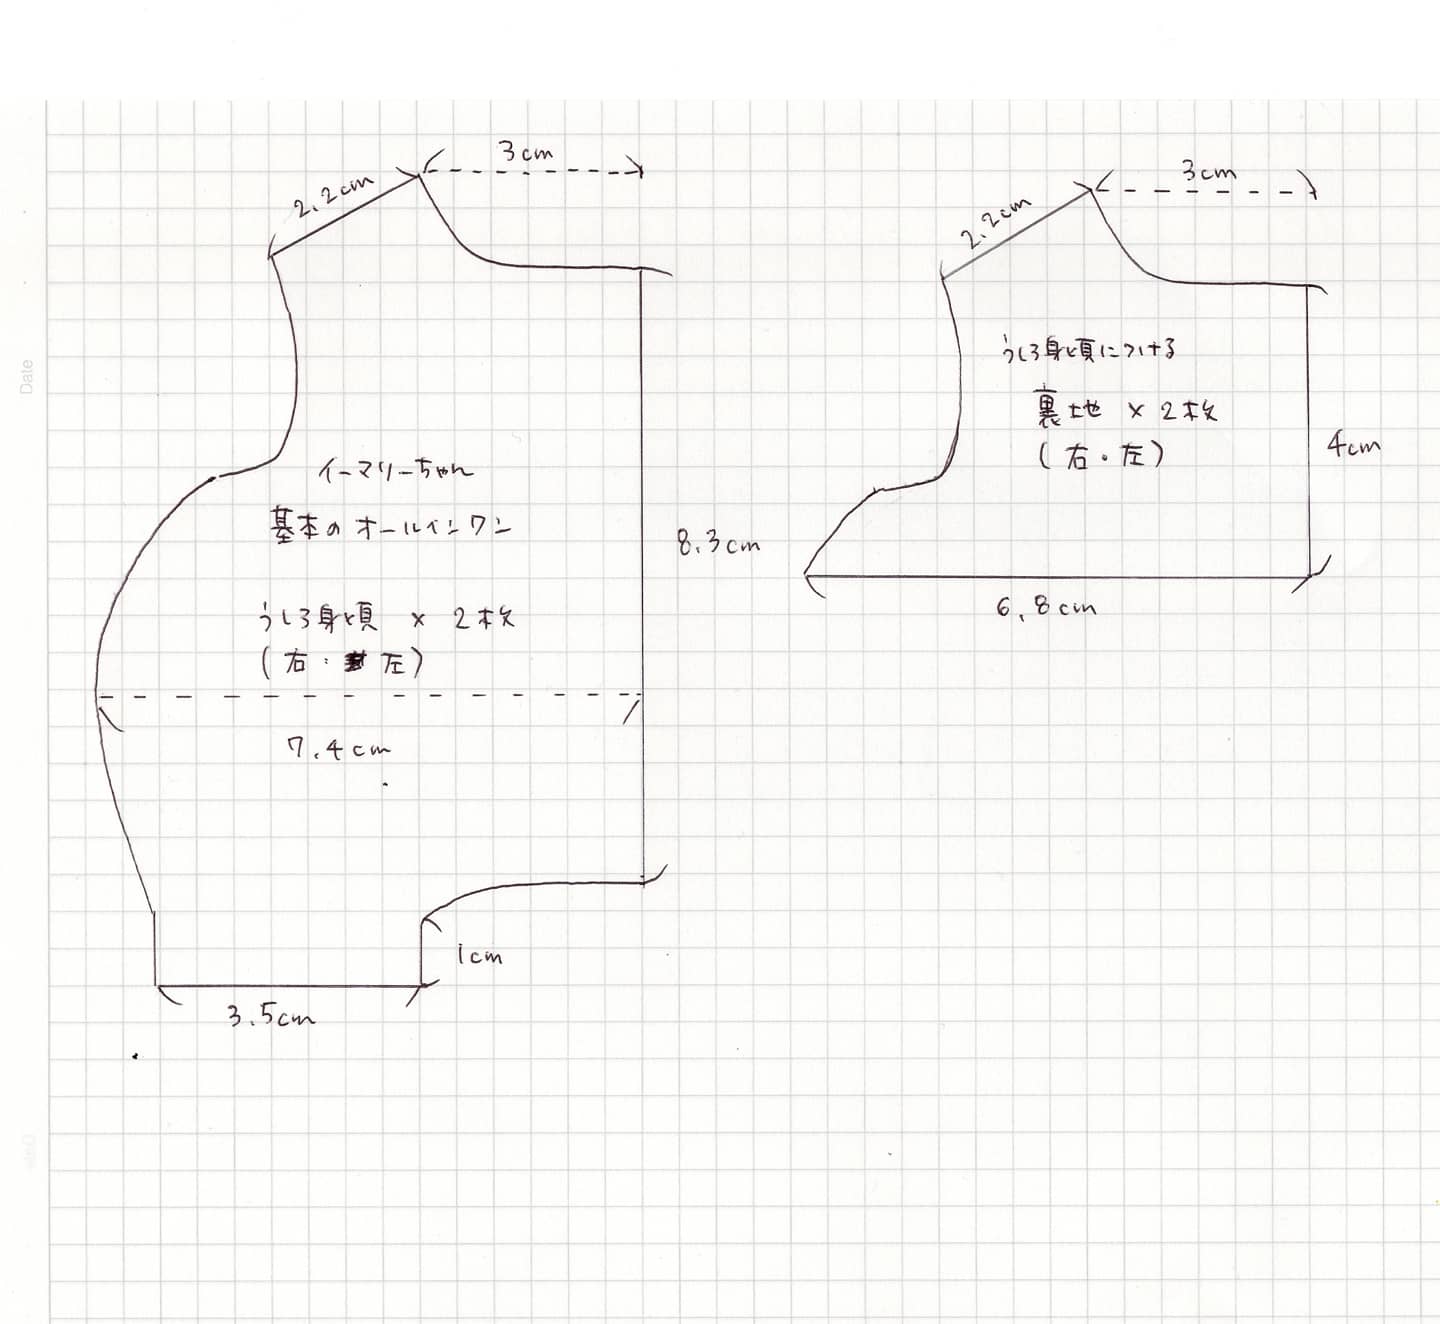 Date
3cm
2.2cm
イーマリーちゃん
基本のオールインワン
うしろ身頃 × 2枚
(右・左)
8.3cm
7.4cm
1cm
3.5cm
3cm
2.2cm
うしろ身頃につける
裏地 × 2枚
(右・左)
4cm
6.8cm